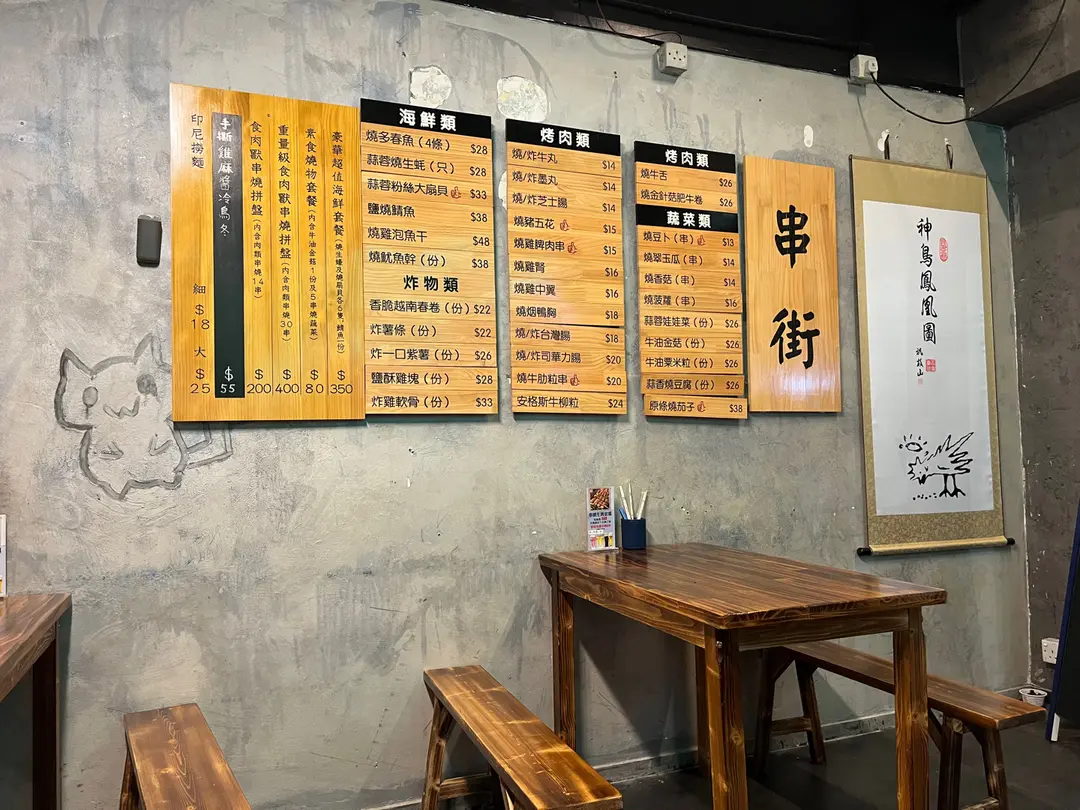 印尼撈麵 細$18 大$25
手撕雞麻醬冷烏冬 $55
食肉獸串燒拼盤(內含肉類串燒14串) $200
重量級食肉獸串燒拼盤(內含肉類串燒30串) $400
素食燒物套餐(內含牛油金菇1份及5串燒蔬菜) $80
豪華超值海鮮套餐(燒生蠔及燒扇貝各6隻,鯖魚一份) $350
海鮮類
燒多春魚(4條) $28
蒜蓉燒生蚝(只) $28
蒜蓉粉絲大扇貝 $33
鹽燒鯖魚 $38
燒雞泡魚干 $48
燒魷魚幹(份) $38
炸物類
香脆越南春卷(份) $22
炸薯條(份) $22
炸一口紫薯(份) $26
鹽酥雞塊(份) $28
炸雞軟骨(份) $33
烤肉類
燒/炸牛丸 $14
燒/炸墨丸 $14
燒/炸芝士腸 $14
燒豬五花 $15
燒雞脾肉串 $15
燒雞腎 $16
燒雞中翼 $16
燒烟鴨胸 $18
燒/炸台灣腸 $18
燒/炸司華力腸 $20
燒牛肋粒串 $20
安格斯牛柳粒 $24
烤肉類
燒牛舌 $26
燒金針菇肥牛卷 $26
蔬菜類
燒豆卜(串) $13
燒翠玉瓜(串) $14
燒香菇(串) $14
燒菠蘿(串) $16
蒜蓉娃娃菜(份) $26
牛油金菇(份) $26
牛油粟米粒(份) $26
蒜香燒豆腐(份) $26
原條燒茄子 $38
串街
神鳥鳳凰圖